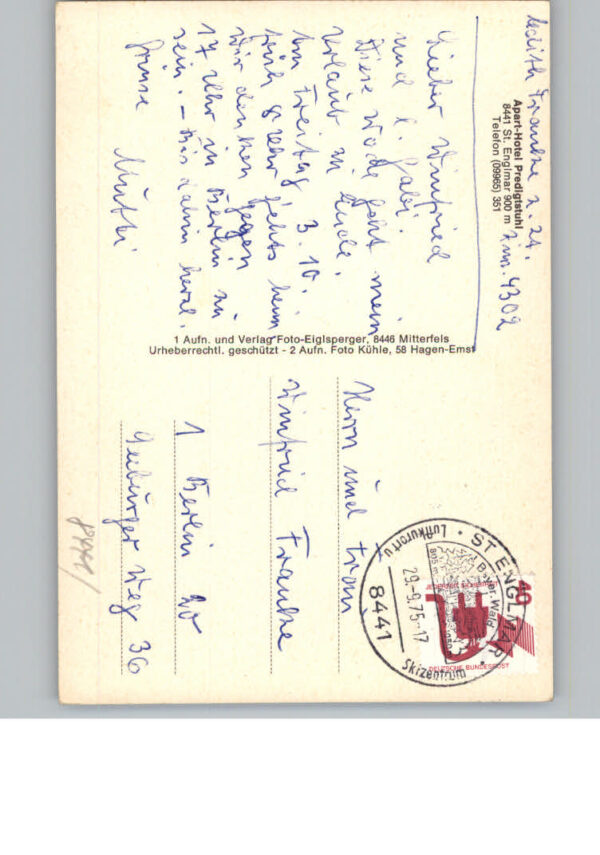 z. Zt.
Apart-Hotel Predigtstuhl
8441 St. Englmar 900 m
Telefon (09965) 351
4302
Lieber Winfried
und l. Gabi!
Diese Woche geht mein
Urlaub zu Ende.
Am Freitag 3.10.
früh geht's heim
Wir denken gegen
17 Uhr in Berlin zu
sein. - Bis dahin herzl.
Grüße Mutti
1 Aufn. und Verlag Foto-Eiglsperger, 8446 Mitterfels
Urheberrechtl. geschützt - 2 Aufn. Foto Kühle, 58 Hagen-Emst
Herrn und Frau
Winfried
1 Berlin 20
Weg 36
ST ENGLMAR
Bayer. Wald
805 m
29.-9.75-17
8441
Luftkurort u
Skizentrum
40
DEUTSCHE BUNDESPOST